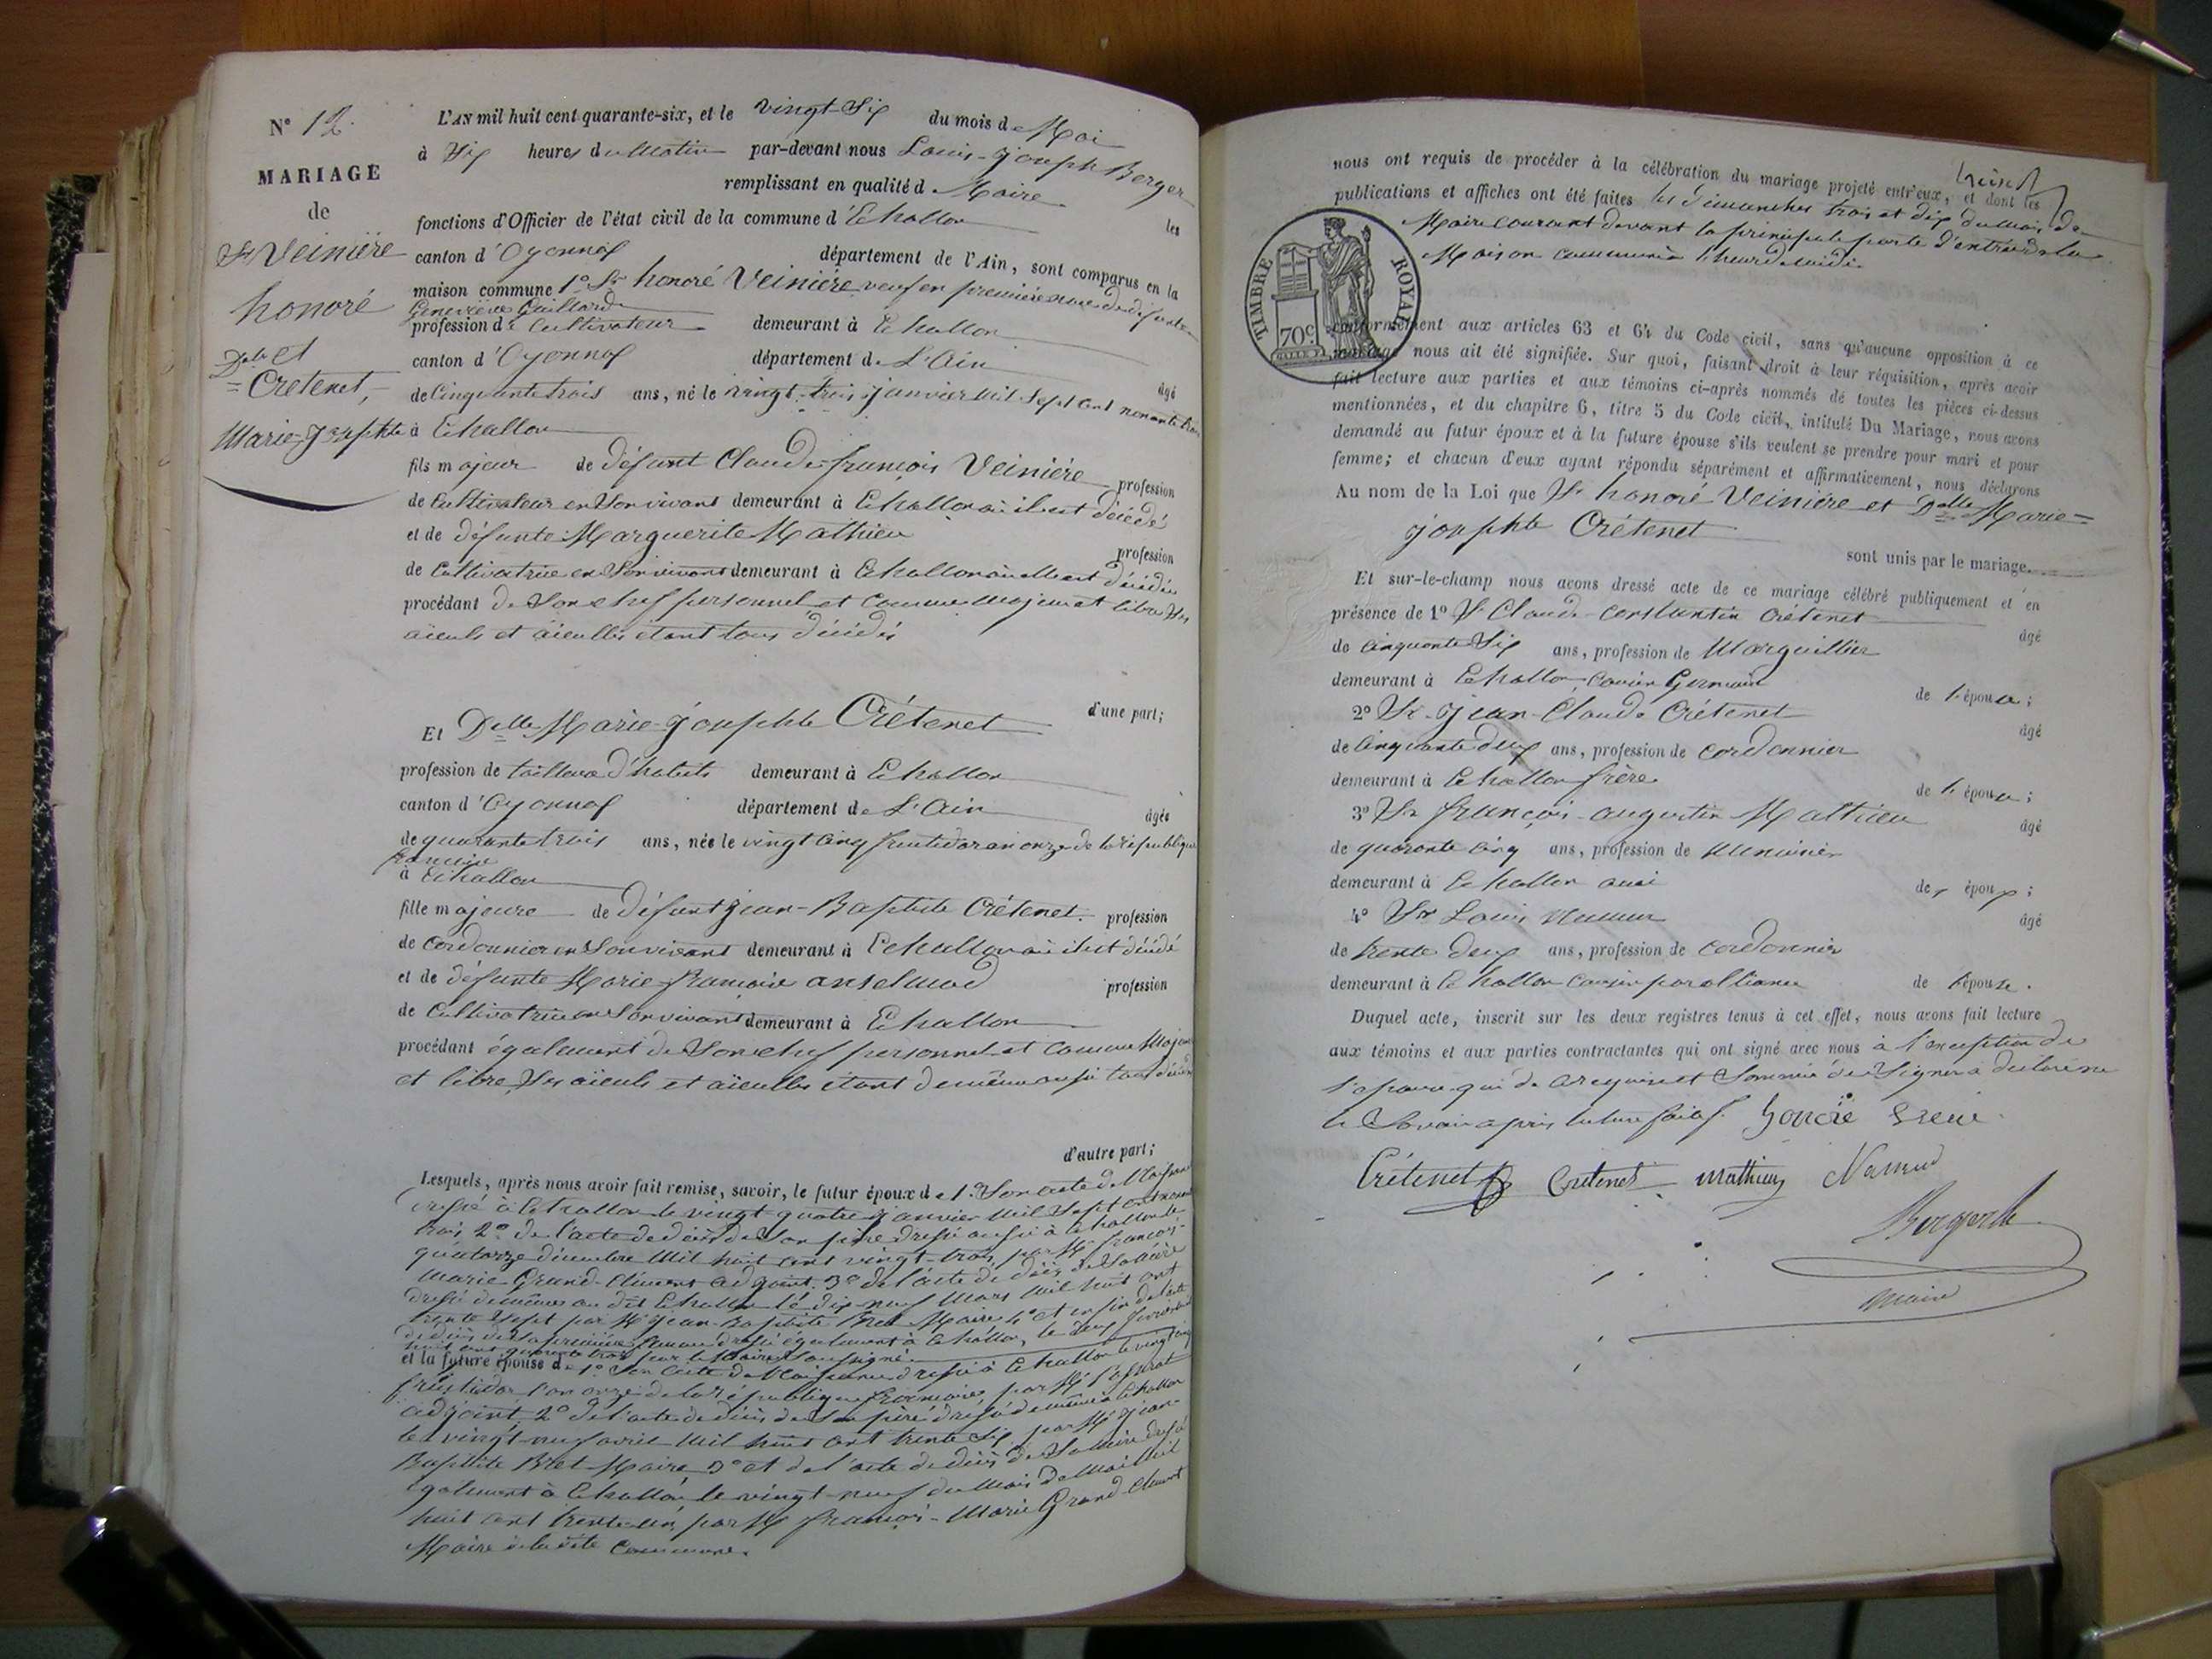 N° 12.
MARIAGE
de
Sr Veinière
honoré
Delle et
= Crétenet,
Marie-Josephte
L'AN mil huit cent quarante-six, et le vingt-Six du mois de Mai
à Six heures du Matin par-devant nous Louis-Joseph Berger
remplissant en qualité de Maire les
fonctions d'Officier de l'état civil de la commune d'Echallon
canton d'Oyonnax département de l'Ain, sont comparus en la
maison commune 1° Sr honoré Veinière, veuf en première noce de défunte
Geneviève Gaillard
profession de Cultivateur demeurant à Echallon
canton d'Oyonnax département de L'Ain âgé
de Cinquante trois ans, né le vingt-trois janvier mil Sept cent nonante trois
à Echallon
fils majeur de défunt Claude françois Veinière profession
de Cultivateur en Son vivant demeurant à Echallon où il est décédé
et de défunte Marguerite Mathieu profession
de Cultivatrice en Son vivant demeurant à Echallon où elle est décédée
procédant de Son chef personnel et comme Majeur et libre Ses
aïeuls et aïeulles étant tous décédés
d'une part;
Et Delle Marie-Josephte Crétenet
profession de tailleuse d'habits demeurant à Echallon
canton d'Oyonnax département de L'Ain âgée
de quarante trois ans, née le vingt cinq fructidor an onze de la république
française
à Echallon
fille majeure de défunt Jean-Baptiste Crétenet profession
de cordonnier en Son vivant demeurant à Echallon où il est décédé
et de défunte Marie-françoise anselmod profession
de Cultivatrice en Son vivant demeurant à Echallon
procédant également de Son chef personnel et comme Majeure
et libre, Ses aïeuls et aïeulles étant de même aussi tous décédés
d'autre part;
Lesquels, après nous avoir fait remise, savoir, le futur époux de 1° Son acte de Naissance
dressé à Echallon le vingt quatre janvier mil Sept cent nonante
trois 2° de l'acte de décès de Son père dressé aussi à Echallon le
quatorze décembre mil huit cent vingt-trois, par Mr françois-
Marie Grand-Clément adjoint. 3° de l'acte de décès de Sa mère
dressé de même au dit Echallon le dix neuf Mars mil huit cent
trente Sept par Mr Jean-Baptiste Bret Maire 4° et enfin de l'acte
de décès de Sa première femme dressé également à Echallon, le deux
huit cent quarante trois par le Maire Soussigné
et la future épouse de 1° Son acte de Naissance dressé à Echallon le vingt cinq
fructidor l'an onze de la république française, par Mr
adjoint 2° de l'acte de décès de Son père dressé de même à Echallon
le vingt-neuf avril mil huit cent trente Six par Mr Jean-
Baptiste Bret Maire, 3° et de l'acte de décès de Sa mère dressé
également à Echallon le vingt-neuf du Mois de Mai mil
huit cent trente un par Mr françois-Marie Grand-Clément
Maire de la dite Commune.
nous ont requis de procéder à la célébration du mariage projeté entr'eux, et dont les
publications et affiches ont été faites les dimanches trois et dix du Mois de
Mai courant devant la principale porte d'entrée de la
Maison commune à l'heure de midi
TIMBRE ROYAL
70c
conformément aux articles 63 et 64 du Code civil, sans qu'aucune opposition à ce
mariage nous ait été signifiée. Sur quoi, faisant droit à leur réquisition, après avoir
fait lecture aux parties et aux témoins ci-après nommés de toutes les pièces ci-dessus
mentionnées, et du chapitre 6, titre 5 du Code civil, intitulé Du Mariage, nous avons
demandé au futur époux et à la future épouse s'ils veulent se prendre pour mari et pour
femme; et chacun d'eux ayant répondu séparément et affirmativement, nous déclarons
Au nom de la Loi que Sr honoré Veinière et Delle Marie=
Josephte Crétenet
sont unis par le mariage.
Et sur-le-champ nous avons dressé acte de ce mariage célébré publiquement et en
présence de 1° Sr Claude-constantin Crétenet âgé
de Cinquante Six ans, profession de Marguillier
demeurant à Echallon, Cousin Germain de l'épouse;
2° Sr Jean-Claude Crétenet âgé
de Cinquante deux ans, profession de cordonnier
demeurant à Echallon frère de l'épouse;
3° Sr françois-augustin Mathieu âgé
de quarante cinq ans, profession de Menuisier
demeurant à Echallon ami des époux;
4° Sr Louis Nermier âgé
de trente deux ans, profession de Cordonnier
demeurant à Echallon Cousin par alliance de l'épouse.
Duquel acte, inscrit sur les deux registres tenus à cet effet, nous avons fait lecture
aux témoins et aux parties contractantes qui ont signé avec nous à l'exception de
l'épouse qui de ce requise et Sommée de Signer a déclaré ne
le Savoir après lecture faite.
Crétenet Cretenet Mathieu
Berger
Maire